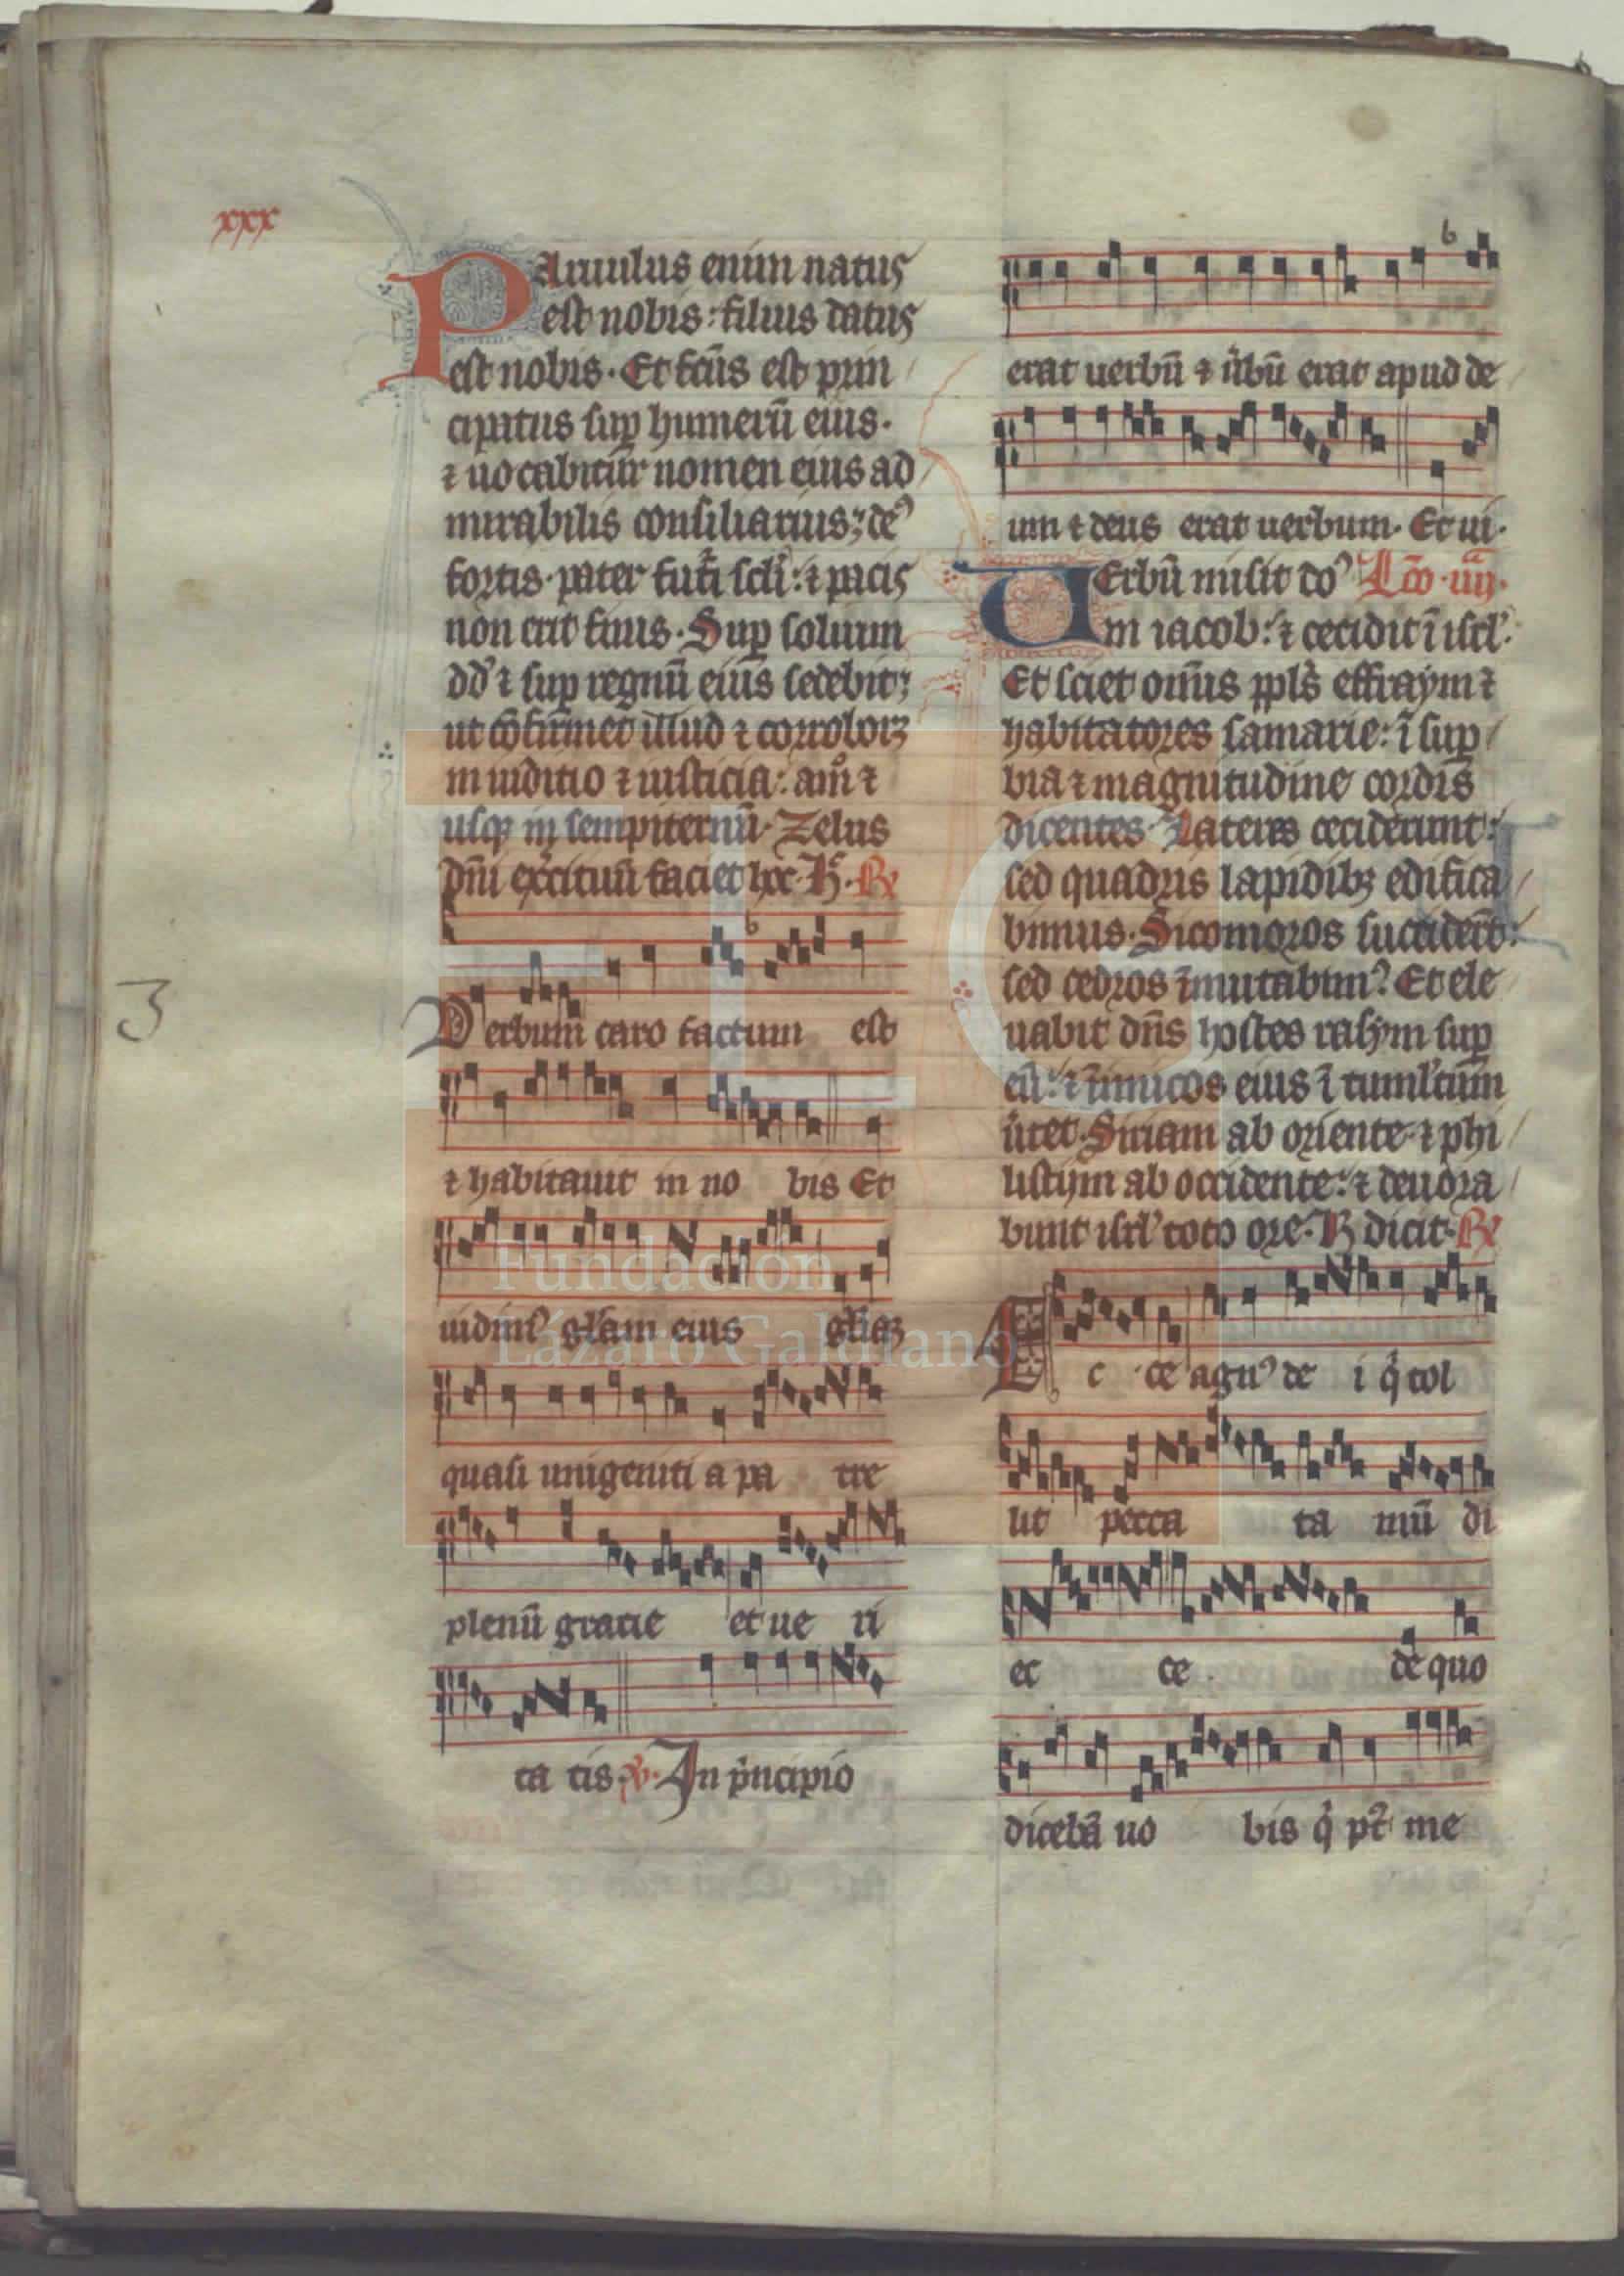 xxx
PAruulus enim natus
est nobis: filius datus
est nobis. Et fc̄us est prin
cipatus sup̲ humerū eius.
⁊ uocabitur nomen eius ad
mirabilis consiliarius; deꝰ
fortis. pater futi scłi: ⁊ pacis
non erit finis. Sup̲ solium
dd̾ ⁊ sup̲ regnū eius sedebit;
ut cōfirmet illud ⁊ corroboꝛ
in iuditio ⁊ iusticia: am̊ ⁊
usqꝫ in sempiternū. Zelus
dn̄i exercituū faciet hoc. H̄. ℞
b
3
Verbum caro factum est
⁊ habitauit in no bis Et
uidimꝰ gl̄am eius gl̄iaꝫ
quasi unigeniti a pa tre
plenū gracie et ue ri
ta tis. ℣. In pͥncipio
b
erat uerbū ⁊ u̾bū erat apud de
um ⁊ deus erat uerbum. Et ui.
VErbū misit do᷒ Lc̄o .iiij.
m iacob: ⁊ cecidit ī isrl̾.
Et sciet om̄is ppl̄s effraym ⁊
habitatores samarie: ī sup̲
bia ⁊ magnitudine cordis
dicentes. Lateres ceciderunt:
sed quadris lapidibꝫ edifica
bimus. Sicomoros succider̄t:
sed cedros īmutabimꝰ. Et ele
uabit dn̄s hostes rasym sup̲
eū: ⁊ īimicos eius ī tumltum
u̾tet. Siriam ab oriente. ⁊ phi
listijm ab occidente: ⁊ deuora
bunt isrl̾ toto ore. H̄ dicit. ℞
Ec ce agnꝰ de i qͥ tol
lit pecca ta mū di
ec ce. de quo
dicebā uo bis qͥ pꝰt me
FLG
Fundación
Lázaro Galdiano